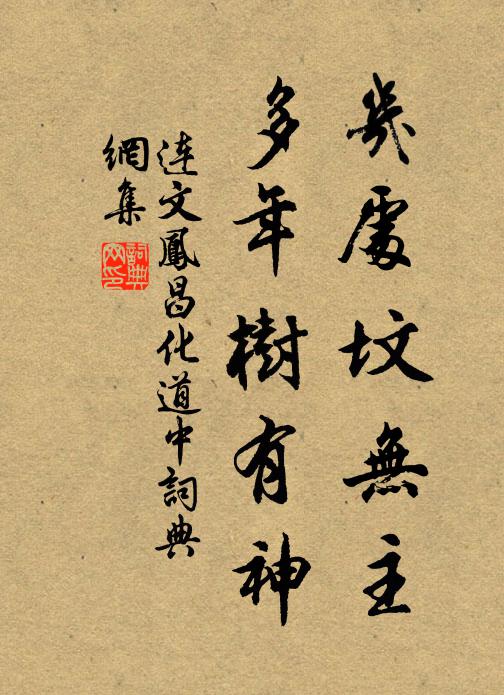 幾處墳無主
多年樹有神
連文鳳昌化道中詞典
網集
詞典
网印